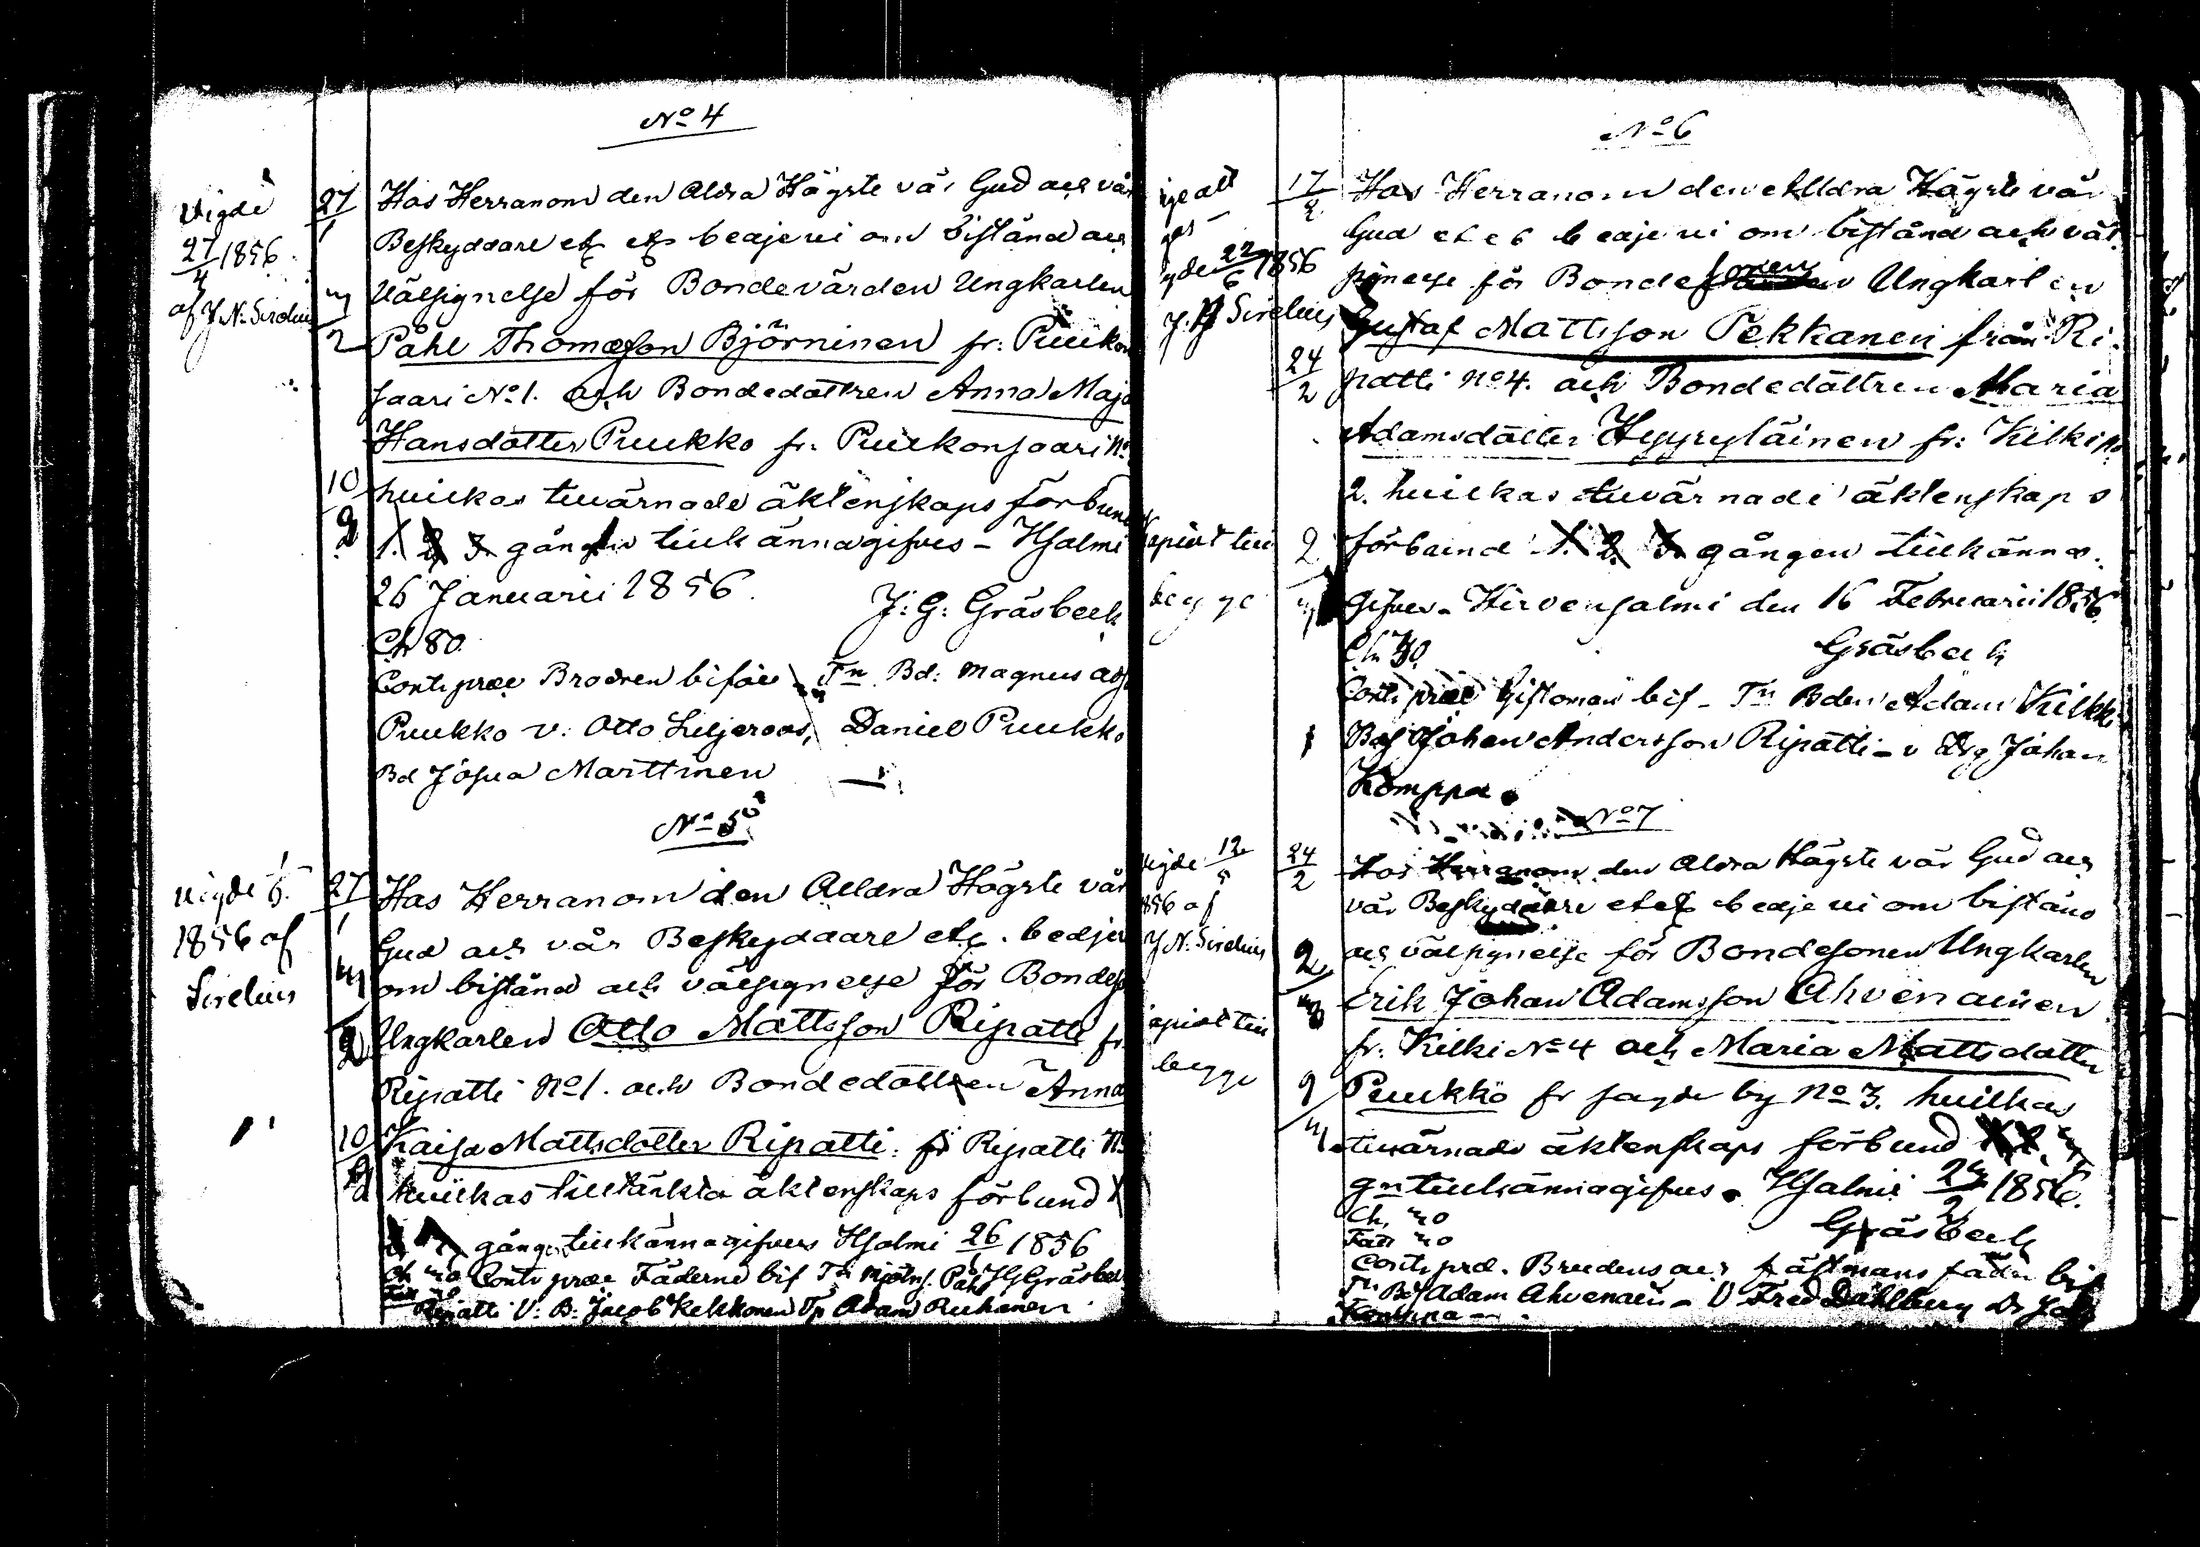 No 4
Vigde
27/4 1856
af J. N. Sirelius
27/1
3/2
10/2
Hos Herranom den Aldra Högste vår Gud och vår
Beskyddare etc etc bedje vi om bistånd och
Välsignelse för Bondevärden Ungkarlen
Påhl Thomasson Björninen fr: Puukon
saari No 1. och Bondedottren Anna Maja
Hansdotter Puukko fr. Puukonsaari No
hvilkas tuvärnade äktenskaps förbund
1. 2. 3. gången tillkännagifves - Hjalmi
26 Januarii 1856.
J: G: Gräsbeck
Ch 80
Contr præe Brodren biföll Tn Bd: Magnus
Puukko V. Otto Liljeroos, Daniel Puukko
Bd Josua Marttinen
No 5
Vigde
1856 af
Sirelius
27/1
3/2
10/2
Hos Herranom den Alldra Högste vår
Gud och vår Beskyddare etc. bedje vi
om bistånd och välsignelse för Bondes
Ungkarlen Otto Mattsson Ripatti fr.
Ripatti No 1. och Bondedottren Anna
Kaisa Mattsdotter Ripatti. fr Ripatti No
hvilkas tilltänkta äktenskaps förbund 1
gången tillkännagifves Hjalmi 26/1 1856
Ch 20 Contr præe Fäderne bif Tn Mjöln. Påhl JGGräsbeck
Ripatti V: B: Jacob Kekkonen Tp Adam Ruhanen
No 6
22/6 1856
J. N Sirelius
17/2
24/2
2/3
Hos Herranom den Alldra Högste vår
Gud etc bedje vi om bistånd och väl
signelse för Bondesonen Ungkarlen
Gustaf Mattsson Pekkanen från Ri-
patti No 4. och Bondedottren Maria
Adamsdotter Hyyryläinen fr: Kilkis
2. hvilkas tuvärnade äktenskaps
förbund 1. 2. 3. gången tillkänna-
gifves - Hirvensalmi den 16 Februarii 1856
Gräsbeck
begge
Contr præe Giftoman bif - Tn Bden Adam Kilkki
Johan Andersson Ripatti - v Drg Johan
Komppa.
No 7
Vigde 12/5
856 af
J N. Sirelius
begge
24/2
2/3
9/3
Hos Herranom den Aldra Högste vår Gud och
vår Beskyddare etc bedje vi om bistånd
och välsignelse för Bondesonen Ungkarlen
Erik Johan Adamsson Ahvenainen
fr. Kilki No 4 och Maria Mattsdotter
Puukko fr sagde by No 3. hvilkas
tuvärnade äktenskaps förbund 1. 2. 3
gn tillkännagifves. Hjalmi 24/2 1856.
Gräsbeck
Contr præ. Brudens och fästmans fäder bif
Tn Bd Adam Ahvenain - V Fred Dahlberg Dr Joh
Komppa -